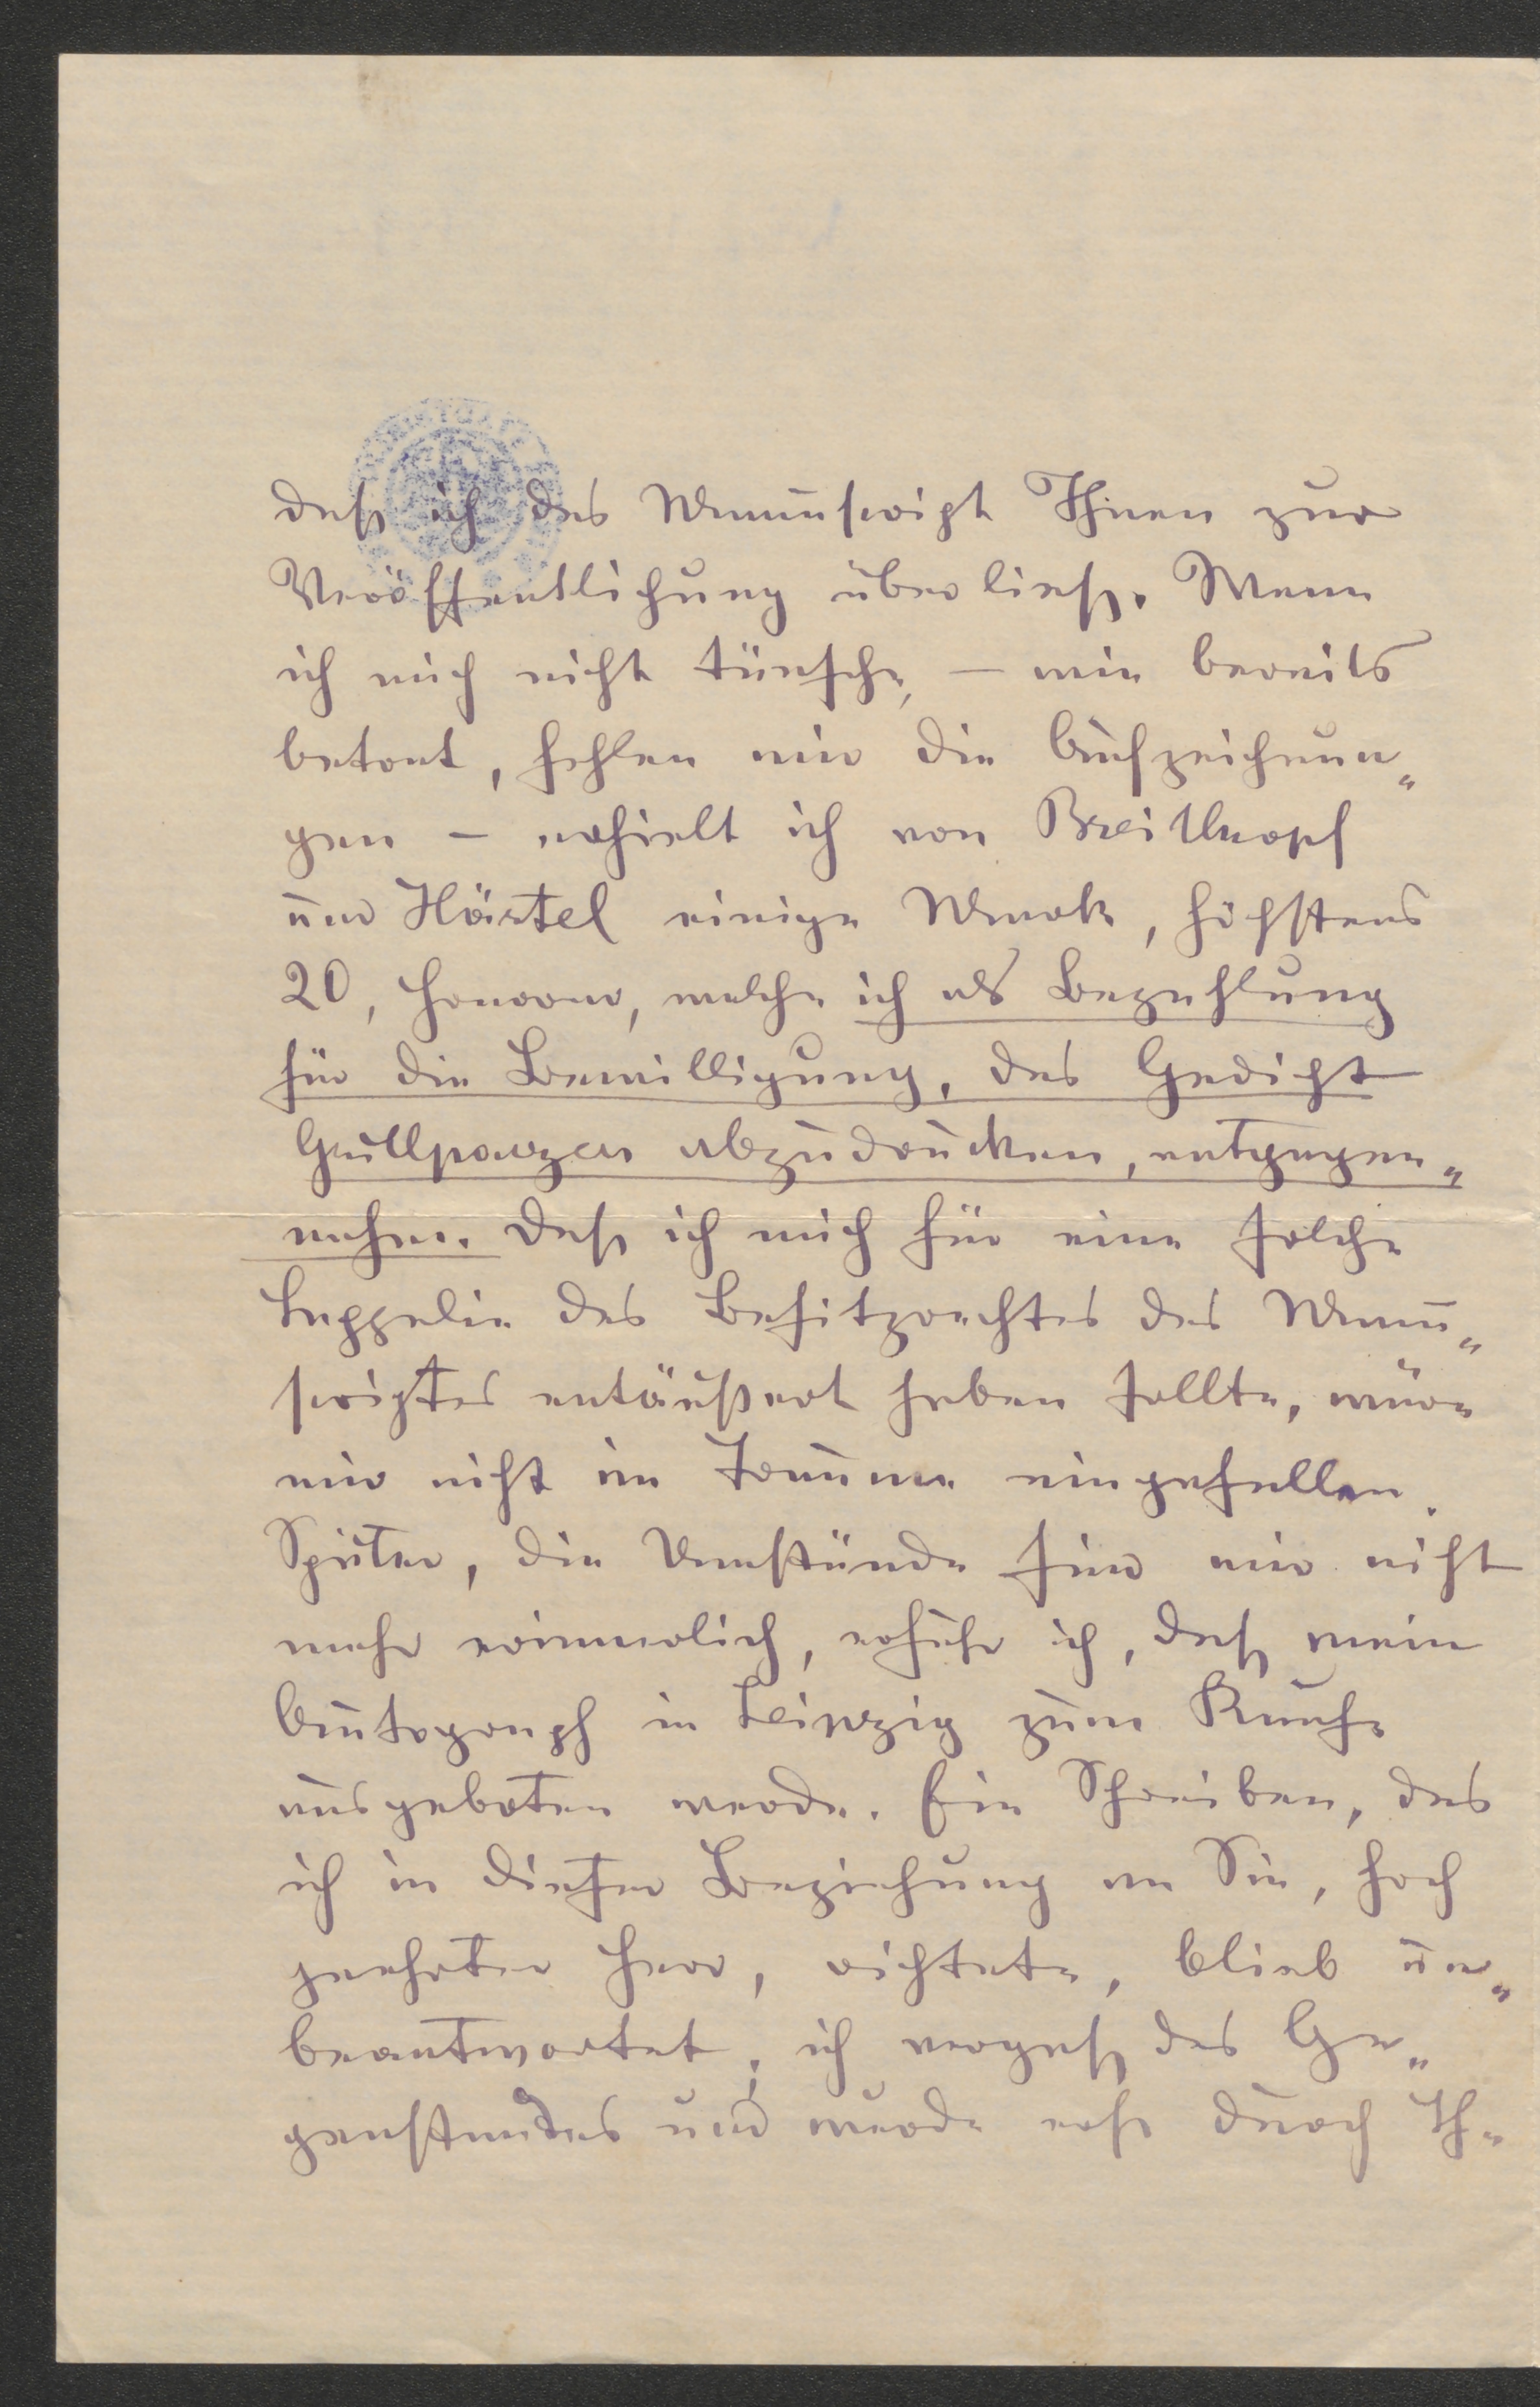 daß ich das Manuscript Ihnen zur
Veröffentlichung überließ. Wenn
ich mich nicht täusche, – wie bereits
betont, fehlen mir die Aufzeichnun„
gen – erhielt ich von Breitkopf
und Härtel einige Mark, höchstens
20, Honorar, welche ich als Bezahlung
für die Bewilligung, das Gedicht
Grillparzers abzudrucken, entgegen„
nahm. Daß ich mich für eine solche
Bappalie des Besitzrechtes des Manu„
scriptes entäußert haben sollte, wäre
mir nicht im Traume eingefallen.
Später, die Umstände sind mir nicht
mehr erinnerlich, erfuhr ich, daß mein
Autograph in Leipzig zum Kaufe
ausgeboten werde. Ein Schreiben, das
ich in dieser Beziehung an Sie, hoch
geehrter Herr, richtete, blieb un„
beantwortet; ich vergaß des Ge„
genstandes und wurde erst durch Ih„